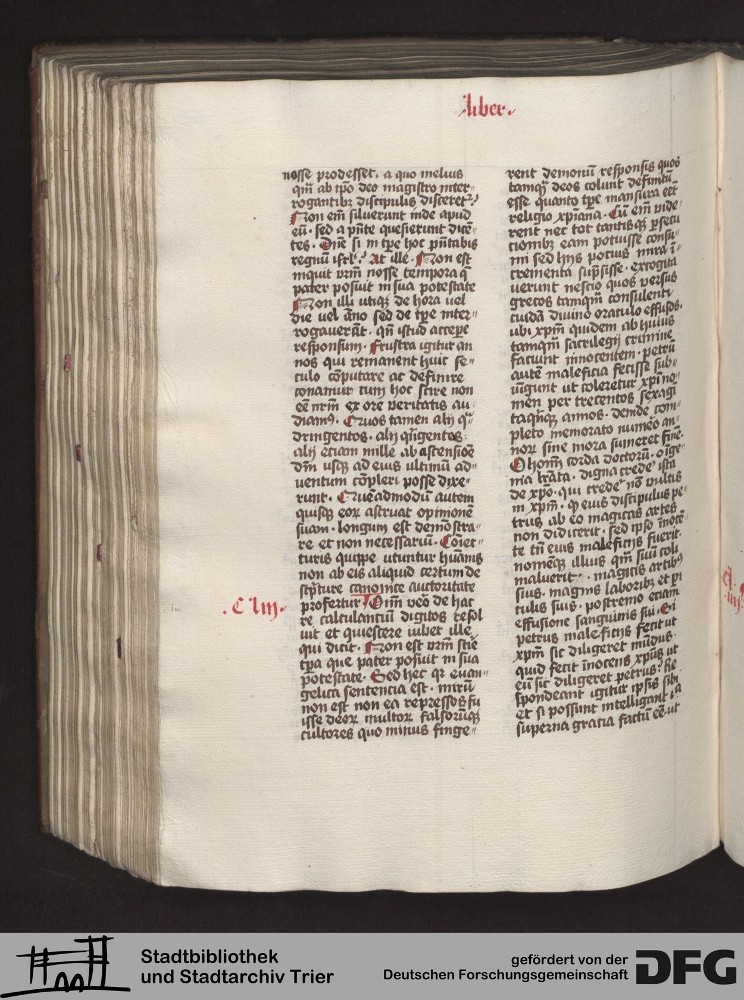 Liber.
nosse prodesset. a quo melius
qm̄ ab ipo deo magistro inter-
rogantibȝ discipulis disceret?
Non em̄ siluerunt inde apud
eū. sed a pn̄te quesierunt dicē-
tes. Dn̄e si in tpe hoc pn̄tabis
regnū isrl̄? At ille. Non est
inquit vrm̄ nosse tempora q̄
pater posuit in sua potestate
Non illi utiqȝ de hora uel
die uel āno sed de tpe inter-
rogauerāt. qn̄ istud accepe
responsum. Frustra igitur an
nos qui remanent huic se-
culo cōputare ac definire
conamur cum hoc scire non
eē nrm̄ ex ore veritatis au-
diamꝰ. Quos tamen alij q̄-
dringentos. alij qīngentos
alij etiam mille ab ascensiōe
dnī usqȝ ad eius ultimū ad-
uentum cōpleri posse dixe-
runt. Quēadmodū autem
quisqȝ eoꝝ astruat opinionē
suam. longum est demōstra-
re et non necessariū. Cōiec-
turis quippe utuntur hūanis
non ab eis aliquid certum de
scpture canonice auctoritate
.C liij.
profertur. Oīm vero de hac
re calculantiū digitos resol
uit et quiescere iubet ille
qui dicit. Non est vrm̄ scīe
tpa que pater posuit in sua
potestate. Sed hec qr euan-
gelica sentencia est. mirū
non est non ea repressos fu
isse deoꝝ multoꝝ falsorūqȝ
cultores quo minus finge-
rent demonū responsis quos
tamqȝ deos colunt definitū
esse quanto tpe mansura eēt
religio xpiana. Cū em̄ vide-
rent nec tot tantisqȝ psecu
cionibȝ eam potuisse consu-
mi sed hijs pocius mira ī-
crementa supsisse. excogita
uerunt nescio quos versus
grecos tamqm̄ consulenti
cuidā diuino oraculo effusos.
ubi xpm̄ quidem ab huius
tamqm̄ sacrilegij crimine
faciunt innocentem. petrū
autē maleficia fecisse sub-
iūgunt ut coleretur xpi no-
men per trecentos sexagi
taqnqȝ annos. deinde com-
pleto memorato numēo an-
noꝝ sine mora sumeret finē.
O hominū corda doctorū. o īge-
nia lrāta. digna crede ista
de xpo. qui crede nō vultis
in xpm̄. qȝ eius discipulus pe-
trus ab eo magicas artes
non didicerit. sed ipso inocē-
te tn̄ eius maleficꝰ fuerit.
nomenqȝ illius qm̄ suū coli
maluerit. magicis artibꝰ
suis. magnis laboribȝ et pi
culis suis. postremo eciam
effusione sanguinis sui. Si
petrus maleficus fecit ut
xpm̄ sic diligeret mūdus.
quid fecit inocens xpūs ut
eū sic diligeret petrus? Re
spondeant igitur ipsi sibi
et si possunt intelligant illa
superna gracia factū eē. ut
Stadtbibliothek
und Stadtarchiv Trier
gefördert von der
Deutschen Forschungsgemeinschaft
DFG